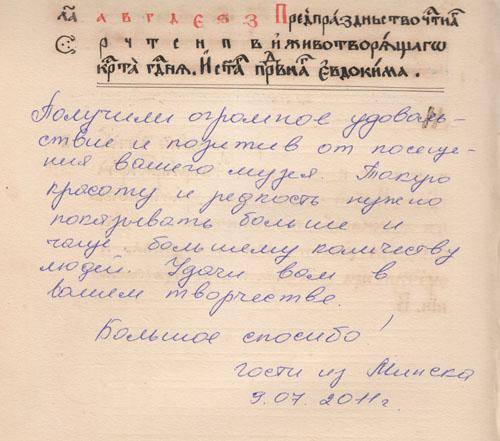 а҃а А В Г Д Е Ѕ З Предпра́здньство чт҇на
Є р ч т с н п в и҆ животворѧ́щагѡ
крⷭ҇та гдⷭ҇нѧ. И҆ ст҃а́гѡ прⷣвнагѡ є҆ѵдокима.
Получили огромное удоволь-
ствие и позитив от посеще-
ния вашего музея. Такую
красоту и редкость нужно
показывать больше и
чаще большему количеству
людей. Удачи вам в
вашем творчестве.
Большое спасибо!
гости из Минска
9.07.2011г.